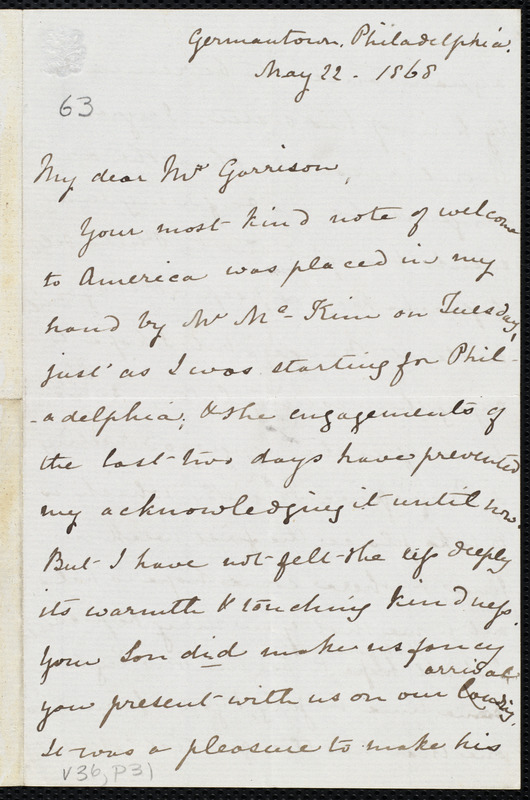 Germantown, Philadelphia.
May 22 - 1868
63
My dear Mr Garrison,
Your most kind note of welcome
to America was placed in my
hand by Mr Mc Kim on Tuesday,
just as I was starting for Phil-
-adelphia; & the engagements of
the last two days have prevented
my acknowledging it until now.
But I have not felt the less deeply
its warmth & touching kindness.
Your Son did make us fancy
arrival
you present with us on our landing.
It was a pleasure to make his
V36, P31